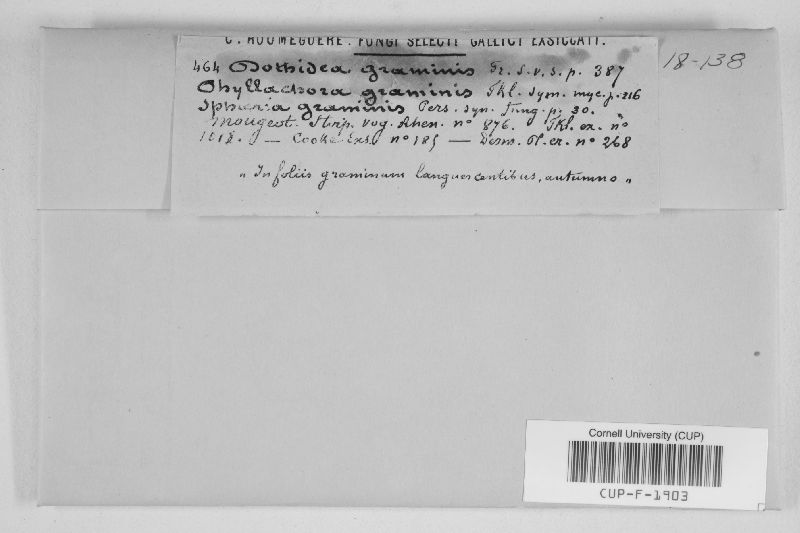 C. ROUMEGUERE. FUNGI SELECTI GALLICI EXSICCATI.
18-138
464 Dothidea graminis Fr. S. v. S. p. 387
Phyllachora graminis Fkl. sym. myc. p. 216
Spheria graminis Pers. syn. Fung. p. 30.
Mougeot. Stirp. vog. Rhen. nº 876. Fkl. ex. nº
1018. — Cooke Exs. nº 185 — Desm. Pl. cr. nº 268
" In foliis graminum languescentibus, autumno "
Cornell University (CUP)
CUP-F-1903